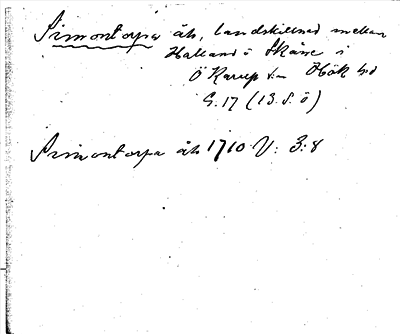 Simontorpa åh, landskillnad mellan
Halland o Skåne i
Ö Karup sn Hök hd
G. 17 (13. S. ö)
Simontorpa åh 1710 V: 3:8